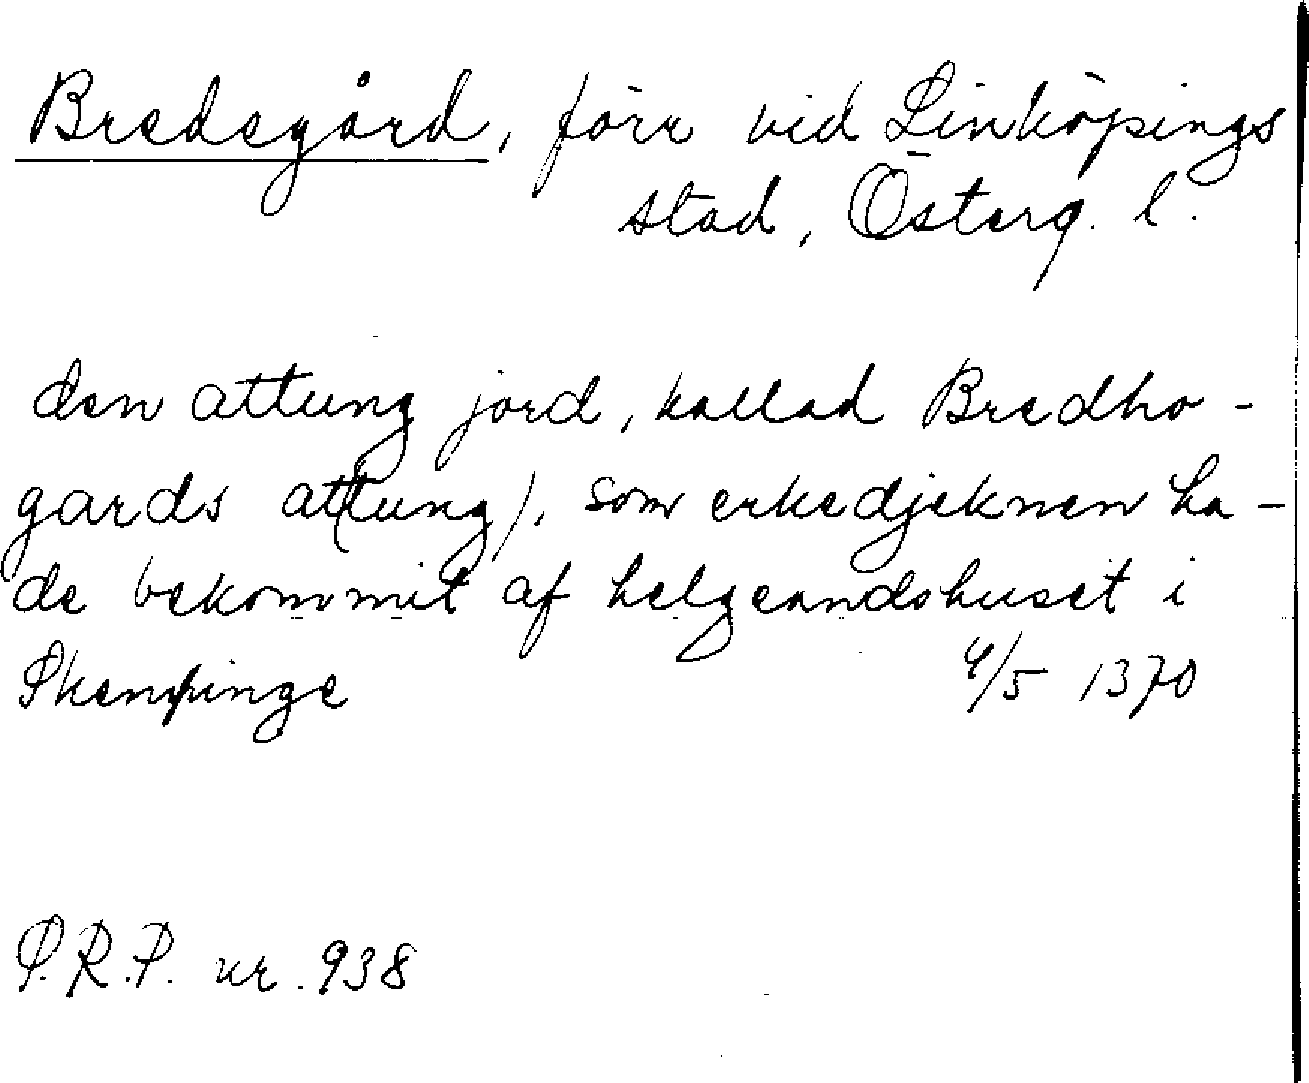 Bredegård, förr vid Linköpings
stad, Österg. l.
den attung jord, kallad Bredho-
gards at(tung), som erkedjeknen ha-
de bekommit af helgeandshuset i
Skeninge 4/5 1370
S.R.P. nr. 938